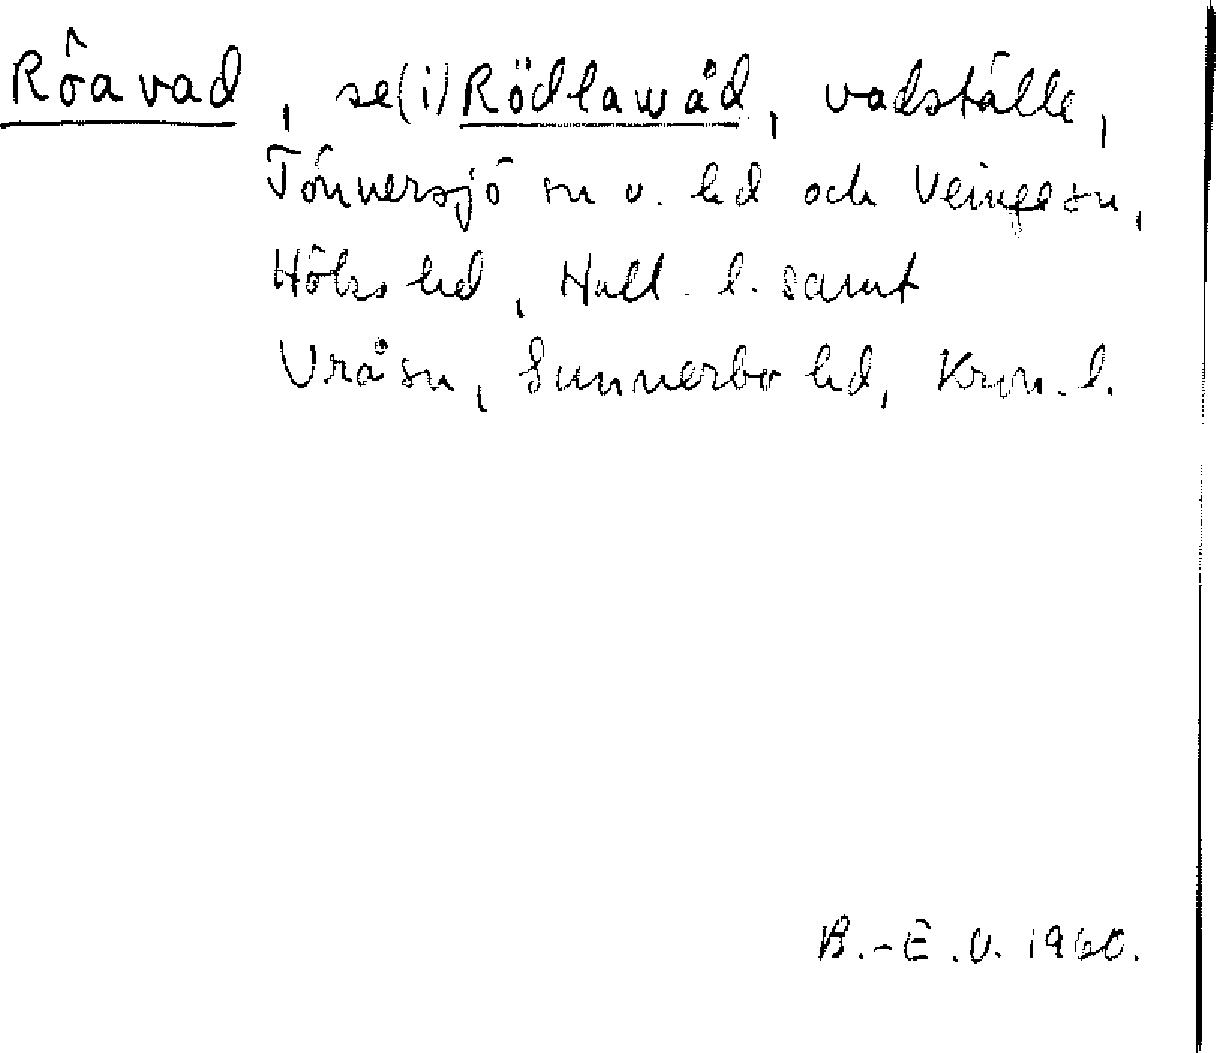 Rôavad, se (i) Rödlawåd, vadställe,
Tönnersjö sn o. hd och Veinge sn,
Höks hd, Hall. l. samt
Vrå sn, Sunnerbo hd, Kron. l.
B.-E.O. 1960.